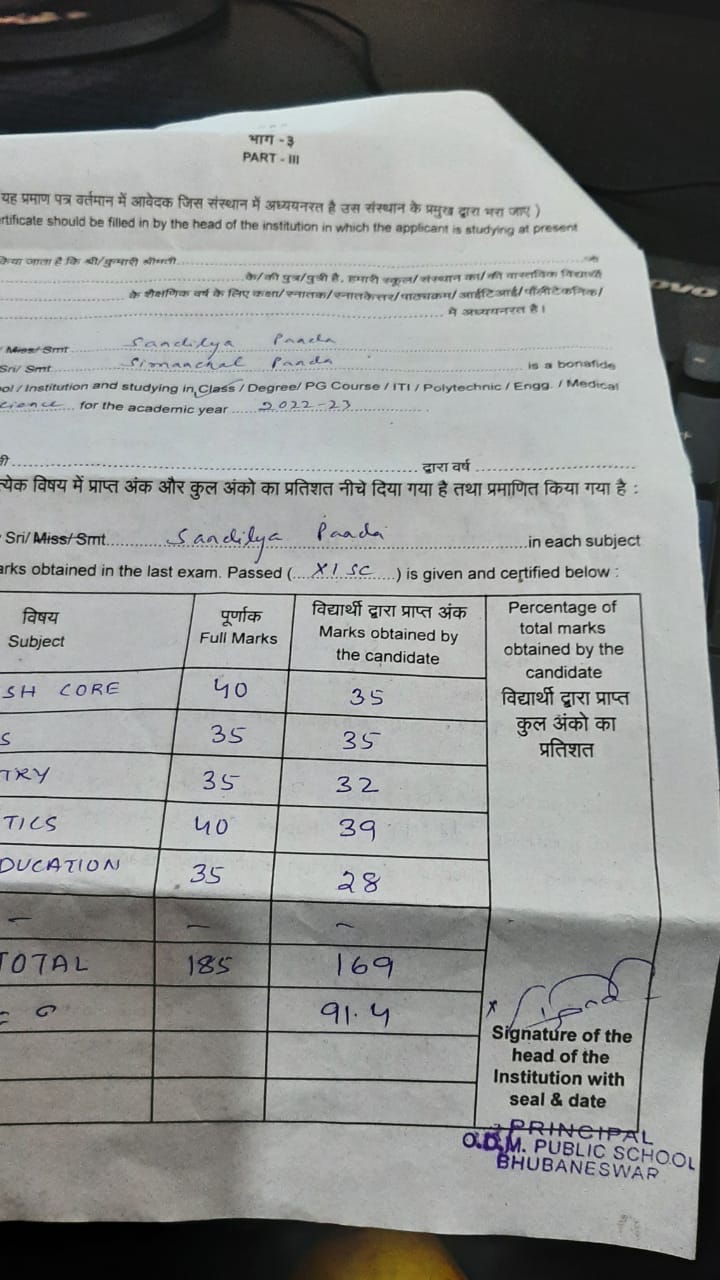 भाग -३
PART - III
यह प्रमाण पत्र वर्तमान में आवेदक जिस संस्थान में अध्ययनरत है उस संस्थान के प्रमुख द्वारा भरा जाए )
rtificate should be filled in by the head of the institution in which the applicant is studying at present
किया जाता है कि श्री/कुमारी श्रीमती
के/की पुत्र/पुत्री है, हमारी स्कूल/संस्थान का/की वास्तविक विद्यार्थी
के शैक्षणिक वर्ष के लिए कक्षा/स्नातक/स्नातकोत्तर/पाठ्यक्रम/आईटिआई/पॉलीटेकनिक/
में अध्ययनरत है।
Miss/ Smt Sandilya Paada
Sri/ Smt Simanchal Panda is a bonafide
ol / Institution and studying in Class / Degree/ PG Course / ITI / Polytechnic / Engg. / Medical
cience for the academic year 2022-23
द्वारा वर्ष
त्येक विषय में प्राप्त अंक और कुल अंको का प्रतिशत नीचे दिया गया है तथा प्रमाणित किया गया है :
Sri/ Miss/ Smt Sandilya Paada in each subject
arks obtained in the last exam. Passed ( XI SC ) is given and certified below :
विषय
Subject
पूर्णाक
Full Marks
विद्यार्थी द्वारा प्राप्त अंक
Marks obtained by
the candidate
Percentage of
total marks
obtained by the
candidate
विद्यार्थी द्वारा प्राप्त
कुल अंको का
प्रतिशत
SH CORE 40 35
S 35 35
TRY 35 32
TICS 40 39
DUCATION 35 28
– – –
TOTAL 185 169
91.4
Signature of the
head of the
Institution with
seal & date
PRINCIPAL
O.D.M. PUBLIC SCHOOL
BHUBANESWAR